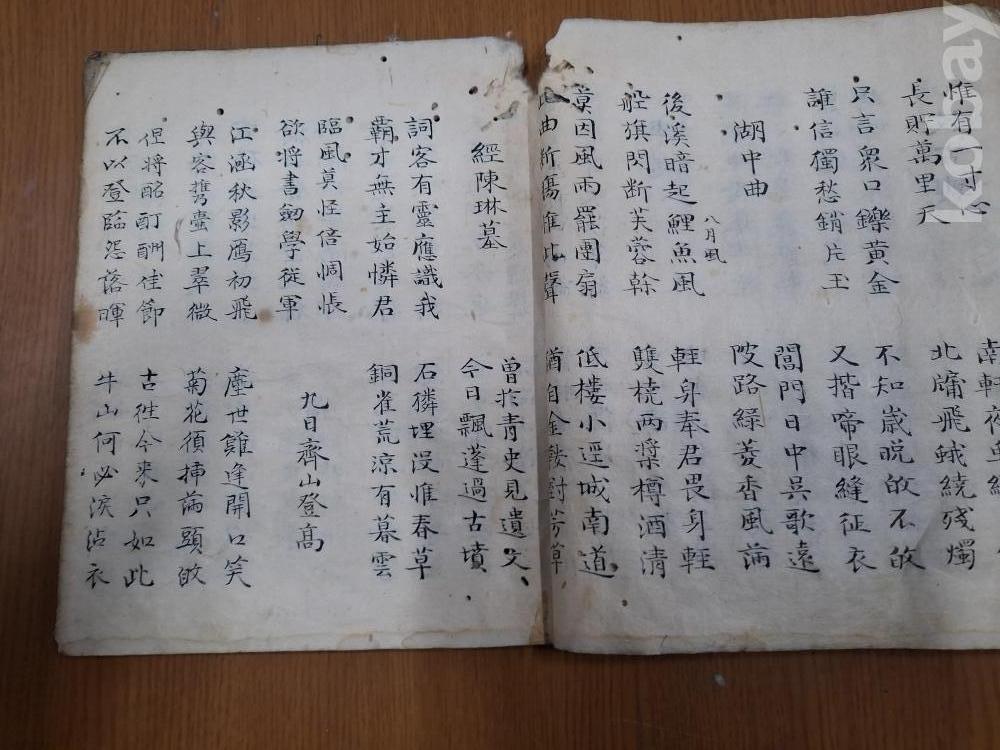 惟有一寸心
長貯萬里天
南軒夜虫織
北牖飛蛾繞殘燭
只言衆口鑠黃金
誰信獨愁銷片玉
不知歲晩故不故
又揩啼眼縫征衣
湖中曲
閶門日中吳歌遠
陂路綠菱香風滿
後溪暗起鯉魚風
八月風
船旗閃断芙蓉幹
輕身奉君畏身輕
雙橈兩槳樽酒清
莫因風雨罷團扇
此曲断膓惟此聲
低樓小逕城南道
猶自金鞍對芳草
經陳琳墓
曾於青史見遺文
今日飄蓬過古墳
詞客有靈應識我
覇才無主始憐君
石麟埋沒惟春草
銅雀荒涼有暮雲
臨風莫怪倍惆悵
欲將書劍學從軍
九日齊山登高
江涵秋影鴈初飛
與客携壺上翠微
塵世難逢開口笑
菊花須揷滿頭故
但將酩酊酬佳節
不以登臨怨落暉
古徃今来只如此
牛山何必淚沾衣
kobay